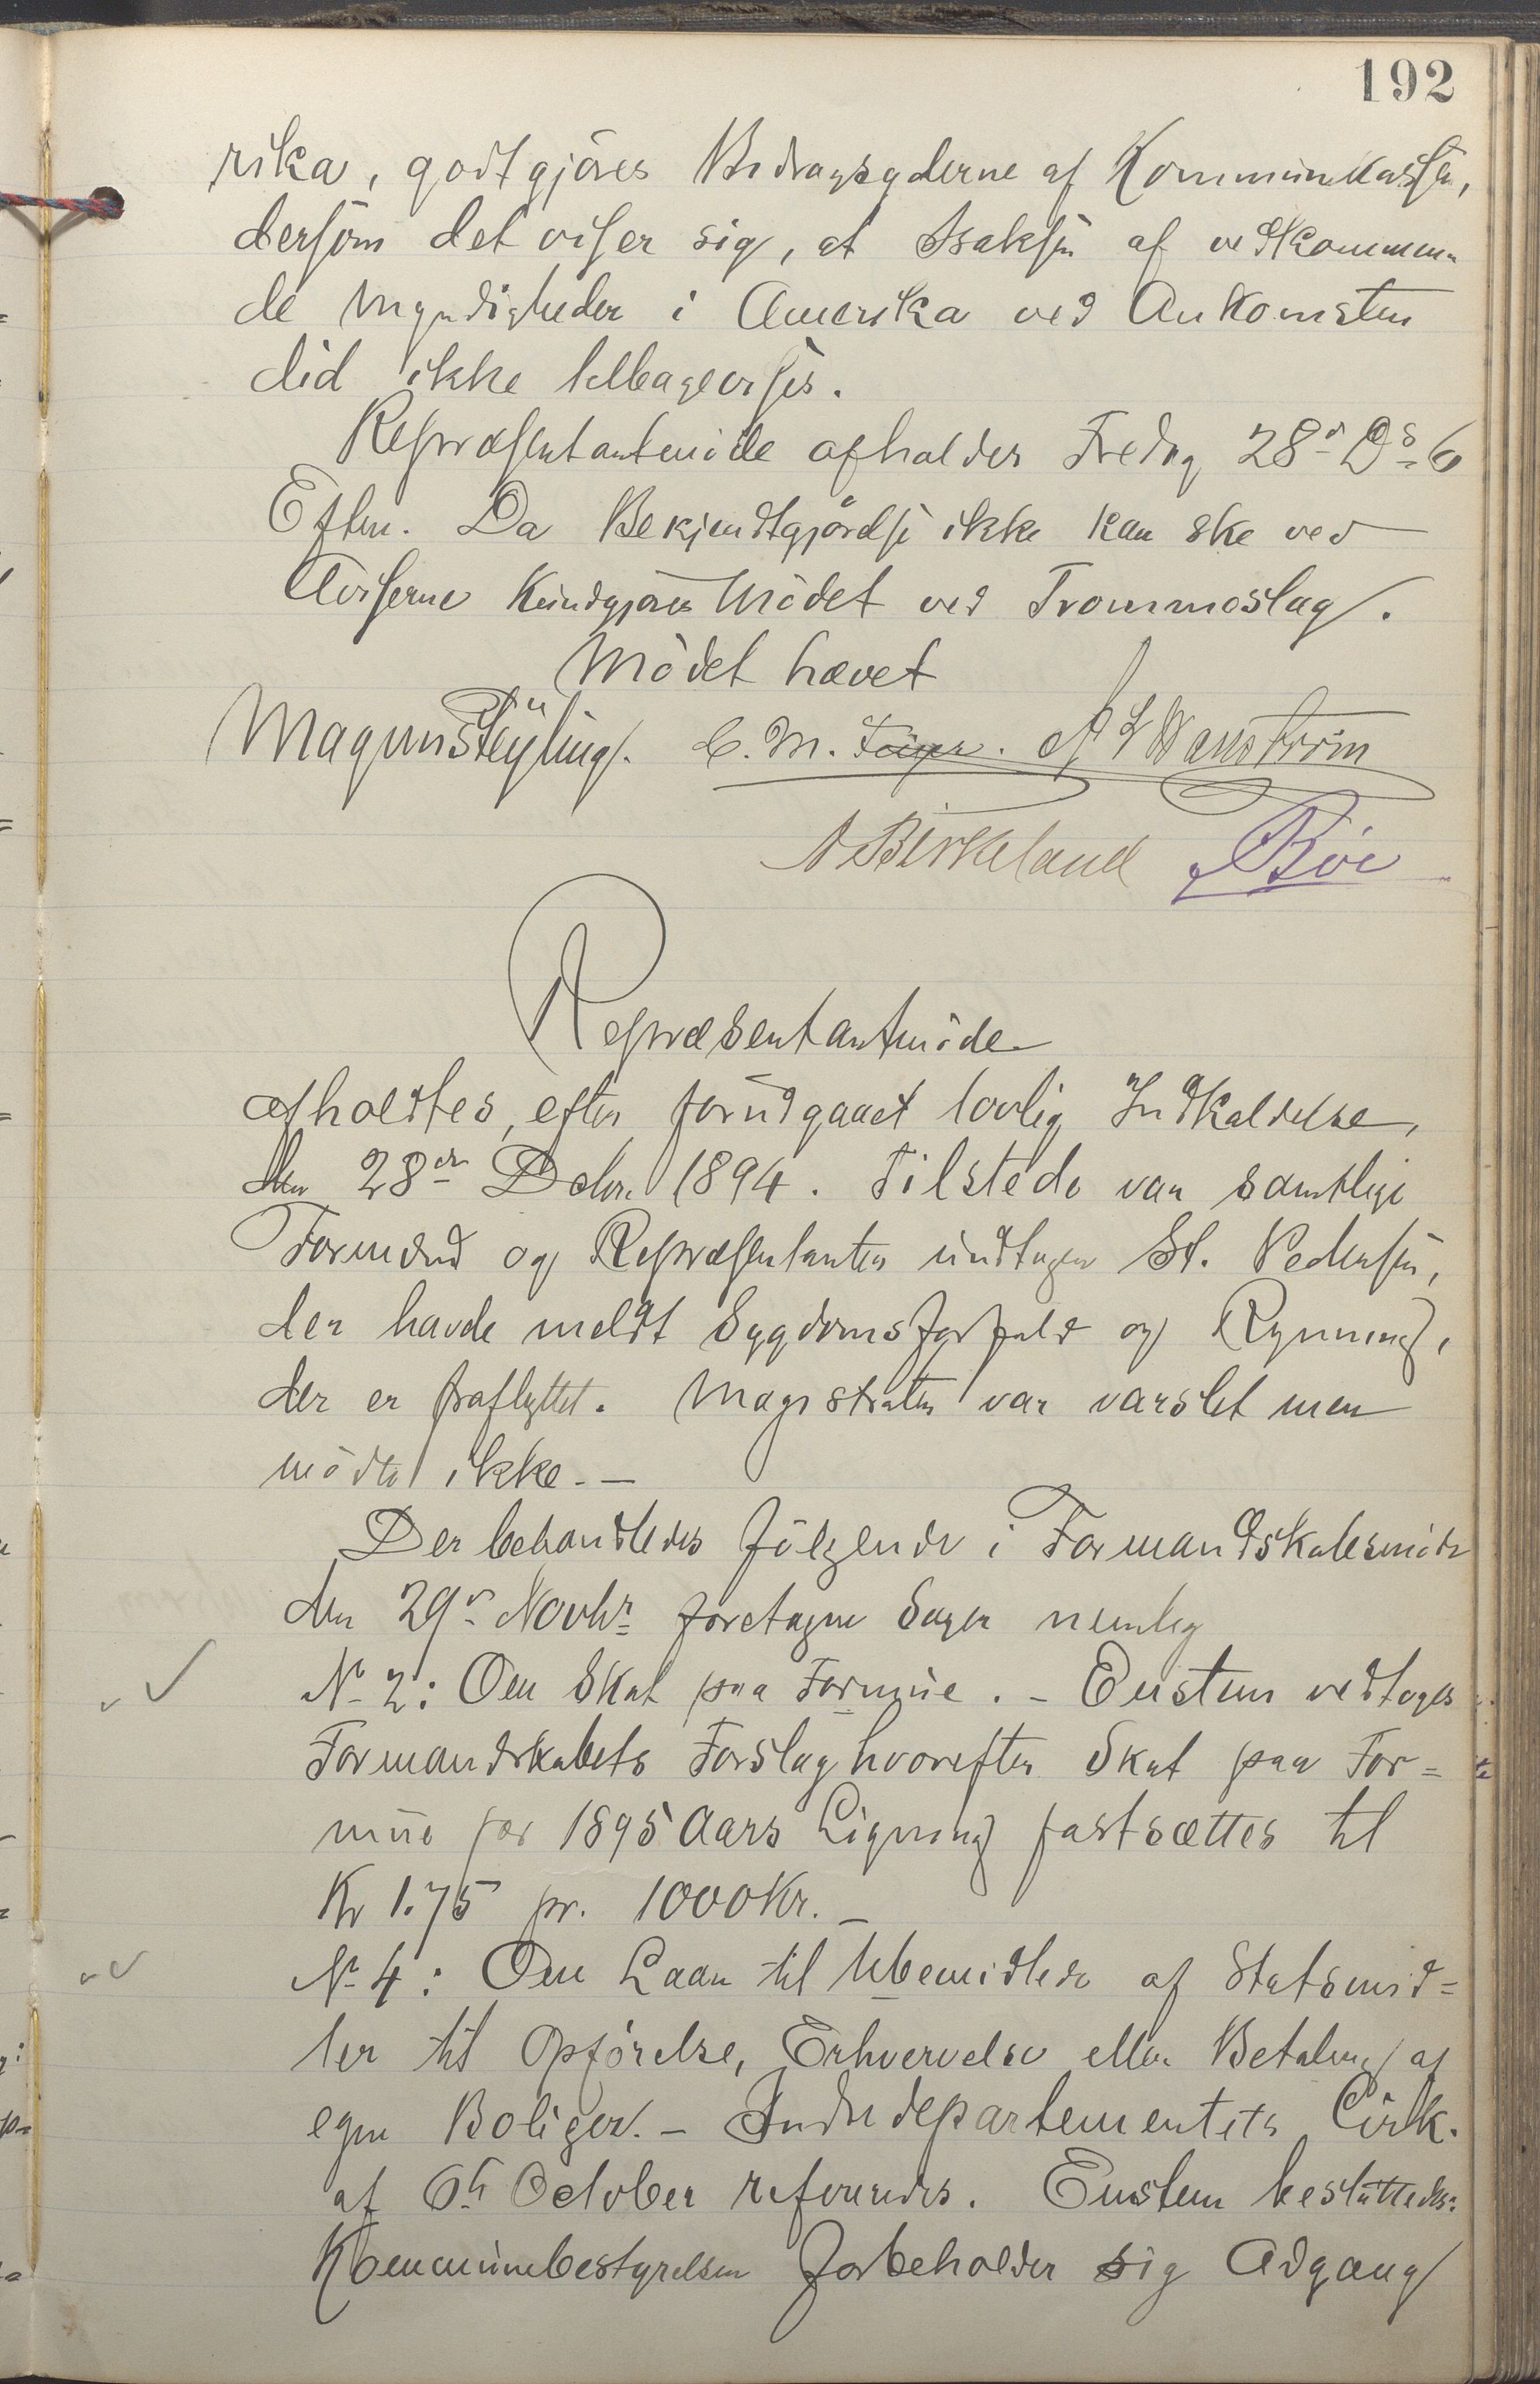 192
rika, godtgjöres Bidragsyderne af Kommunekassen,
dersom det viser sig, at Isaksen af vedkommen-
de Myndigheder i Amerika ved Ankomsten
did ikke tilbagevises.
Repræsentantmöde afholdes Fredag 28de Ds 6
Efterm. Da Bekjendtgjörelse ikke kan ske ved
Aviserne kundgjöres Mödet ved Trommeslag.
Mödet hævet
Magnus C. M. Wenström
Birkeland Böe
Repræsentantmöde
afholdtes, efter forudgaaet lovlig Indkaldelse,
den 28de Decbr. 1894. Tilstede var samtlige
Formænd og Repræsentanter undtagen St. Pedersen,
der havde meldt Sygdomsforfald og Rynning,
der er fraflyttet. Magistraten var varslet men
mödte ikke. —
Der behandledes fölgende i Formandskabsmöde
den 29de Novbr. foretagne Sager nemlig
No 2: Om Skat paa Formue. - Enstem vedtoges
Formandskabets Forslag hvorefter Skat paa For=
mue for 1895 Aars Ligning fastsættes til
Kr 1.75 pr. 1000 Kr. —
No 4: Om Laan til Ubemidlede af Statsmid=
ler til Opförelse, Erhvervelse eller Betaling af
egne Boliger. - Indredepartementets Cirk.
af 6te October refereredes. Enstem besluttedes:
Kommunebestyrelsen forbeholder sig Adgang